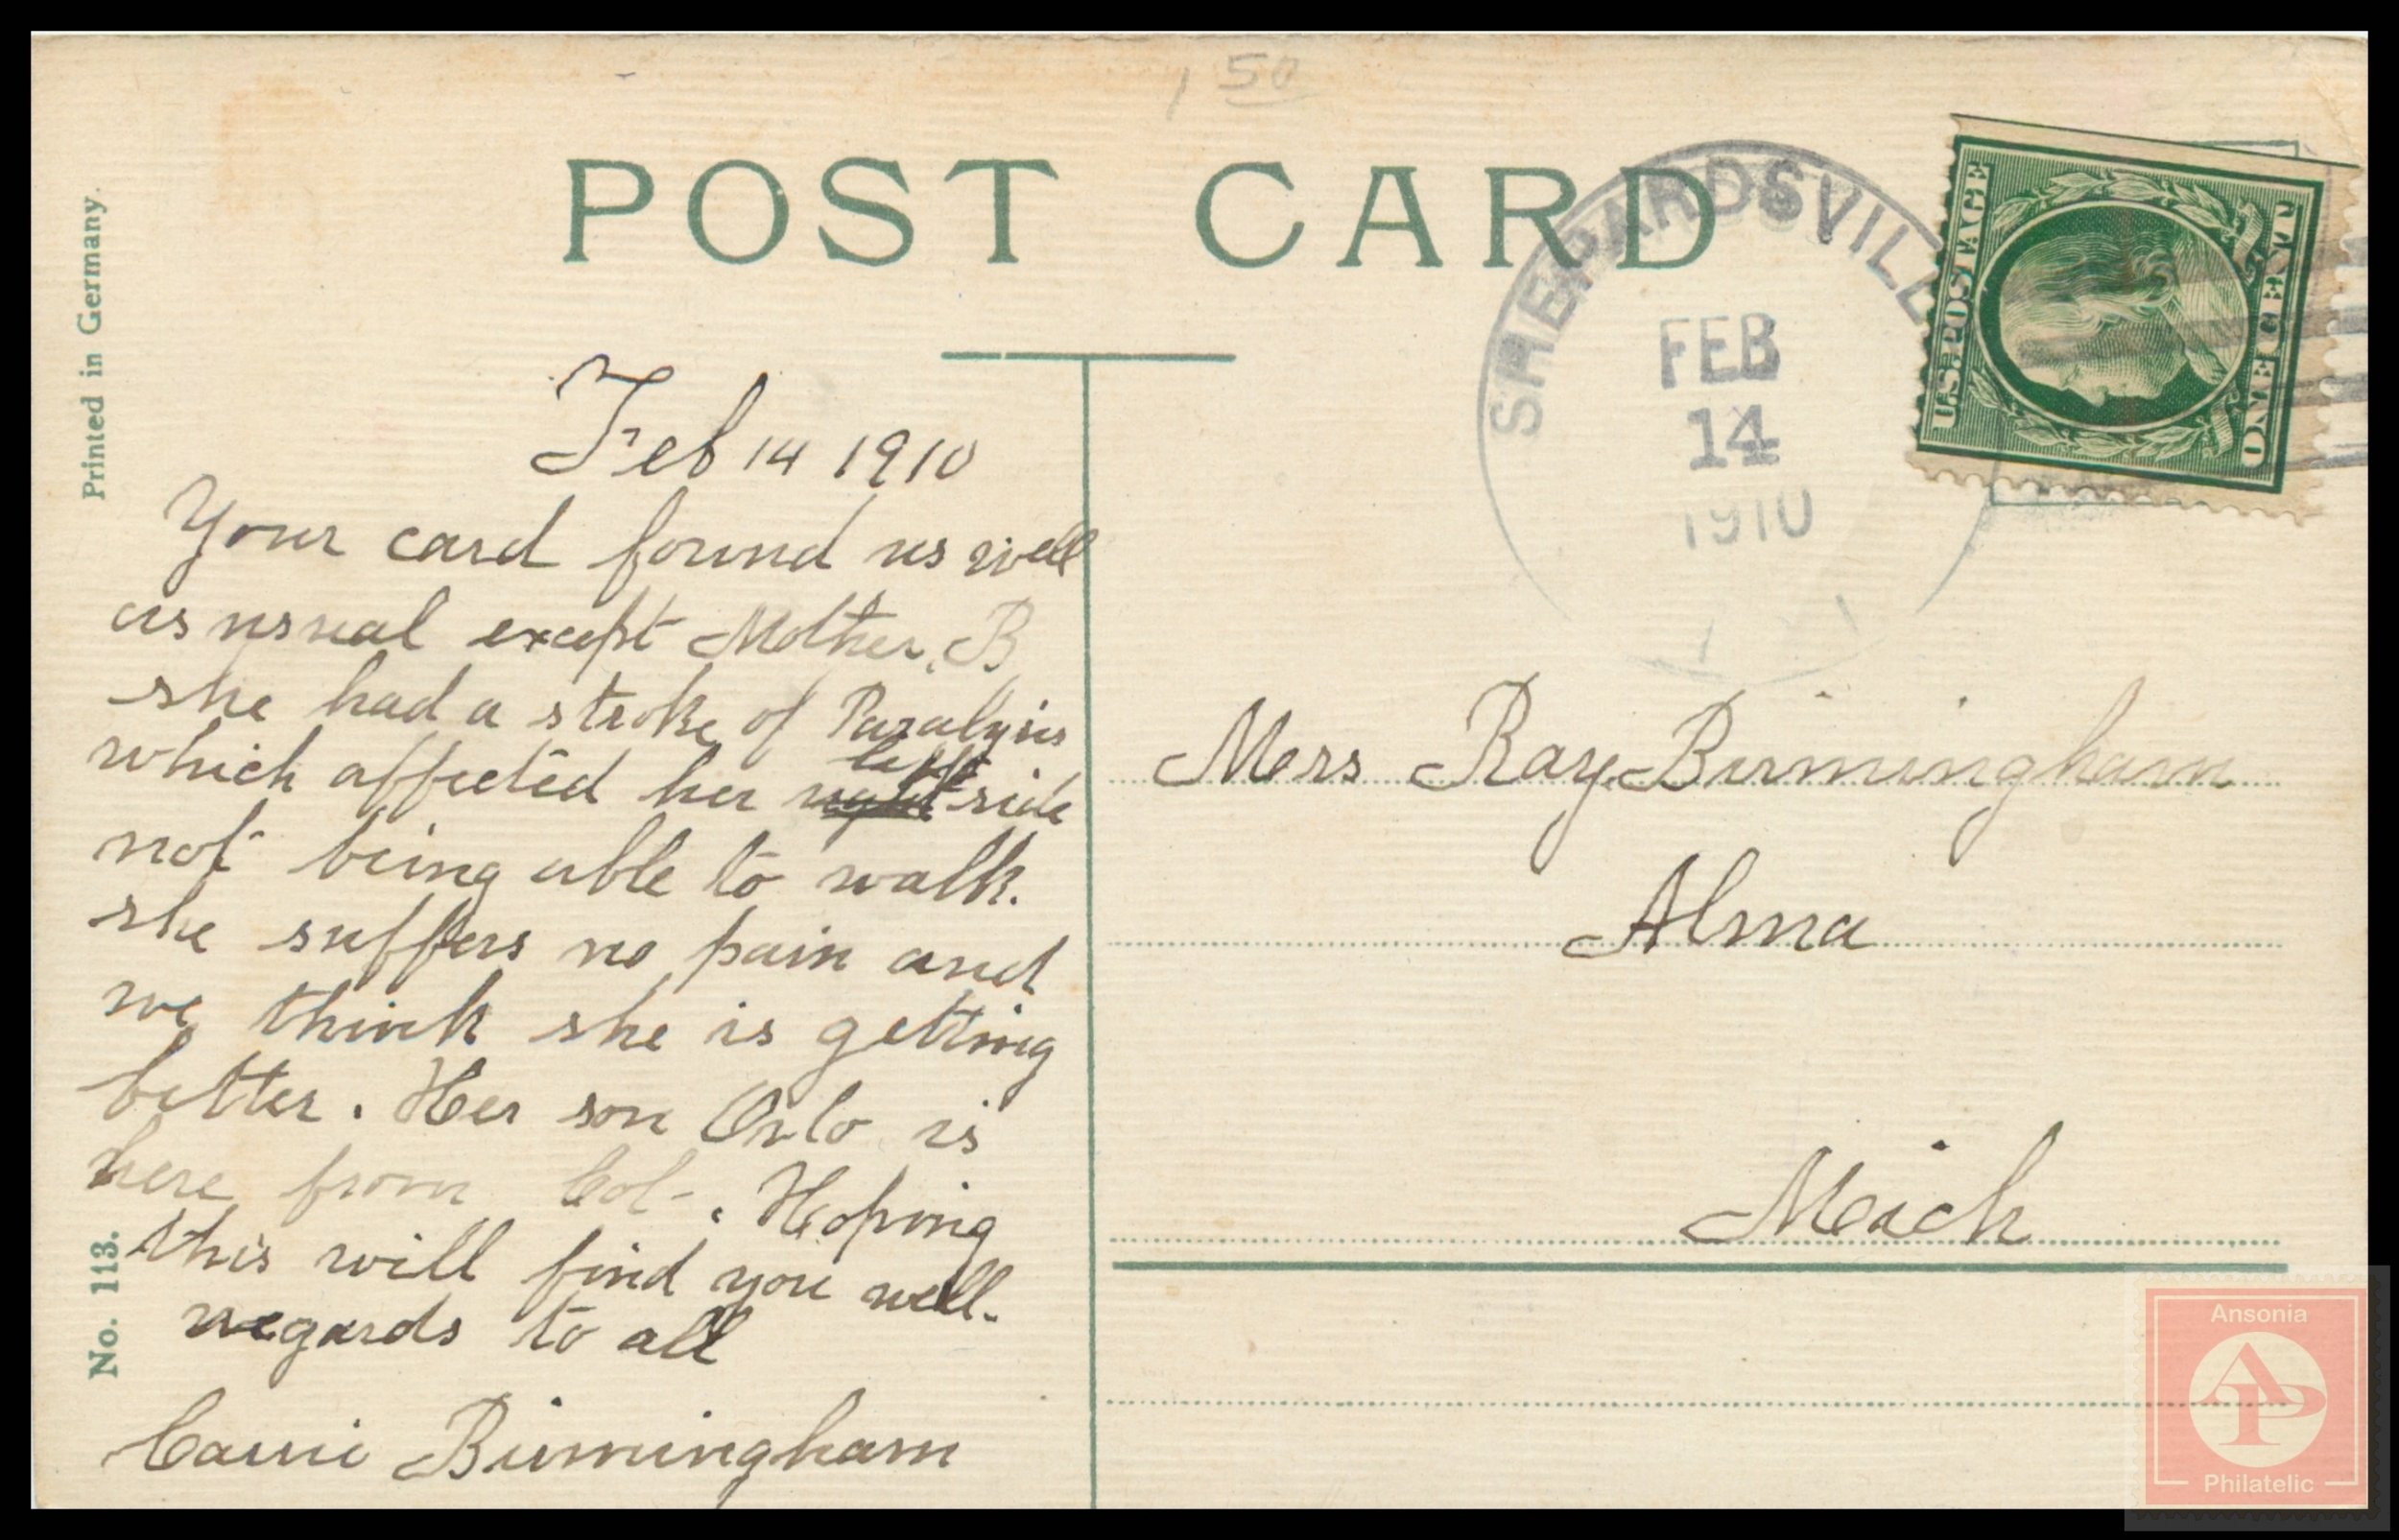 1 50
POST CARD
Printed in Germany.
No. 113.
SHEPARDSVILL
FEB
14
1910
U.S. POSTAGE
ONE CENT
Feb 14 1910
Your card found us well
as usual except Mother. B
she had a stroke of Paralysis
left
which affected her right side
not being able to walk.
she suffers no pain and
we think she is getting
better. Her son Orlo is
here from Col-. Hoping
this will find you well-
regards to all
Carrie Birmingham
Mrs Ray Birmingham
Alma
Mich
Ansonia
AP
Philatelic